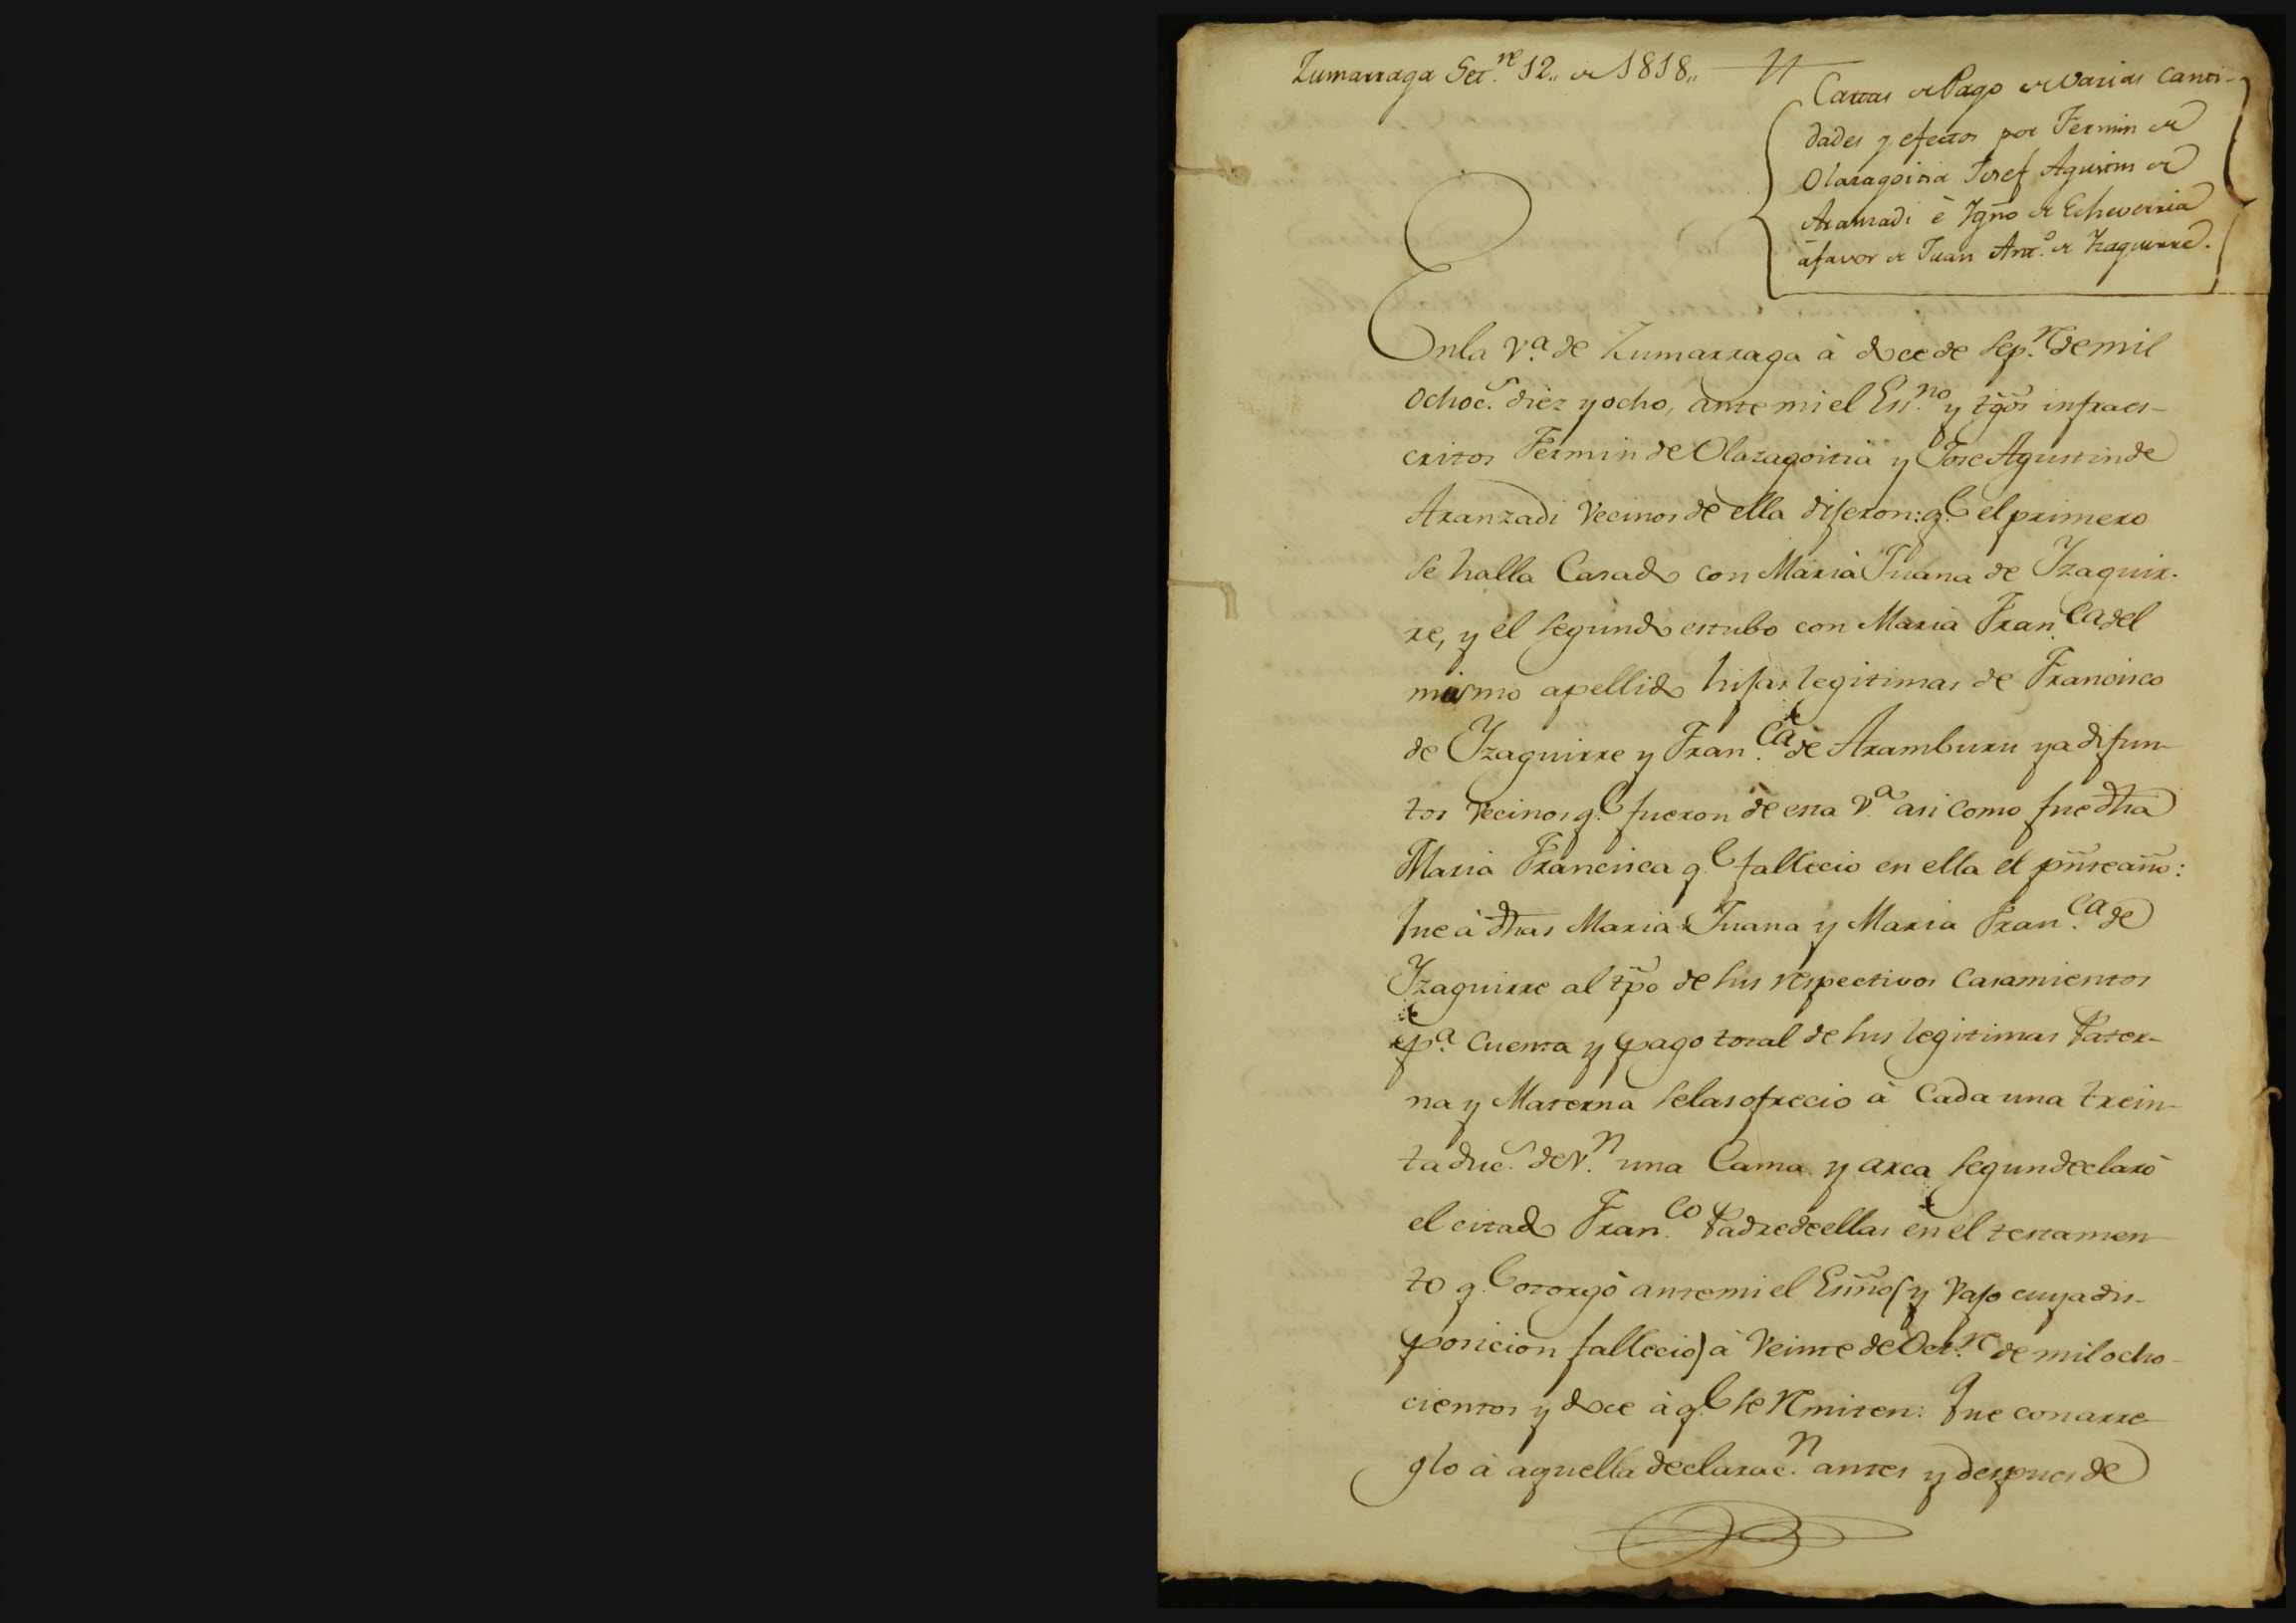 Zumarraga Set.re 12,, de 1818,,
Cartas de Pago de varias canti-
dades y efectos por Fermin de
Olazagoitia Josef Agustin de
Aranzadi è Ygno de Echeverria
à favor de Juan Ant.o de Yzaguirre.
En la v.a de Zumarraga à doce de Sep.re de mil
ochoc.s diez y ocho, ante mi el Es.no y tgõs infraes-
critos Fermin de Olazagoitia y Jose Agustin de
Aranzadi Vecinos de ella dijeron: q.e el primero
se halla Casado con Maria Juana de Yzaguir-
re, y el segundo estubo con Maria Fran.ca del
mismo apellido hijas legitimas de Francisco
de Yzaguirre y Fran.ca de Aramburu ya difun-
tos Vecinos q.e fueron de esta V.a asi como fue dha
Maria Francisca q.e fallecio en ella el pñte año:
Que à dhas Maria Juana y Maria Fran.ca de
Yzaguirre al tp̃o de sus respectivos Casamientos
p.a Cuenta y pago total de sus legitimas Pater-
na y Materna se las ofrecio à Cada una trein-
ta duc.s de v.n una Cama y arca segun declarò
el citado Fran.co Padre de ellas en el testamen-
to q.e otorgò ante mi el Esñno (y Vajo cuya dis-
posicion fallecio) à Veinte de Oct.re de mil ocho-
cientos y doce à q.e se remiten: Que con arre-
glo à aquella declarac.n antes y despues de